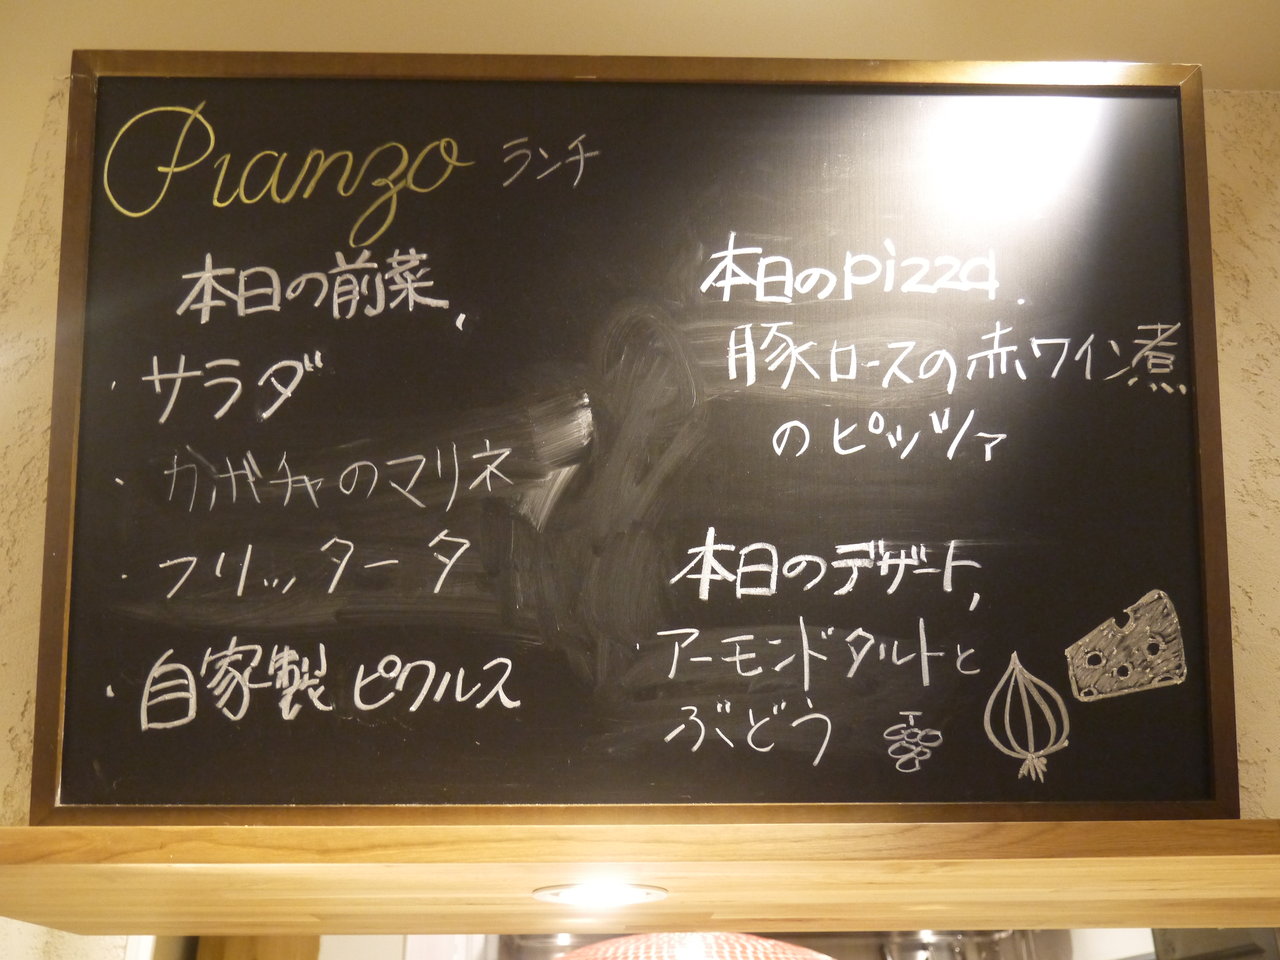 Pranzo ランチ
本日の前菜
・サラダ
・カボチャのマリネ
・フリッタータ
・自家製ピクルス
本日のpizza.
豚ロースの赤ワイン煮
のピッツァ
本日のデザート
・アーモンドタルトと
ぶどう